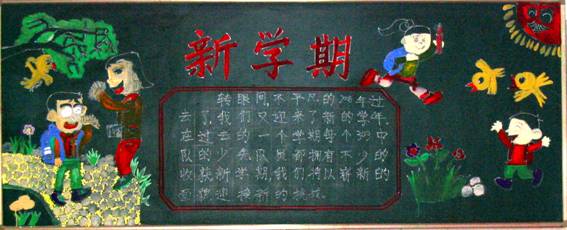 新学期
转眼间,不平凡的年过
去了,我们又迎来了新的学年,
在过去的一个学期每个中
队的少先队员都拥有不少的
收获,新学期,我们将以崭新的
面貌迎接新的挑战.